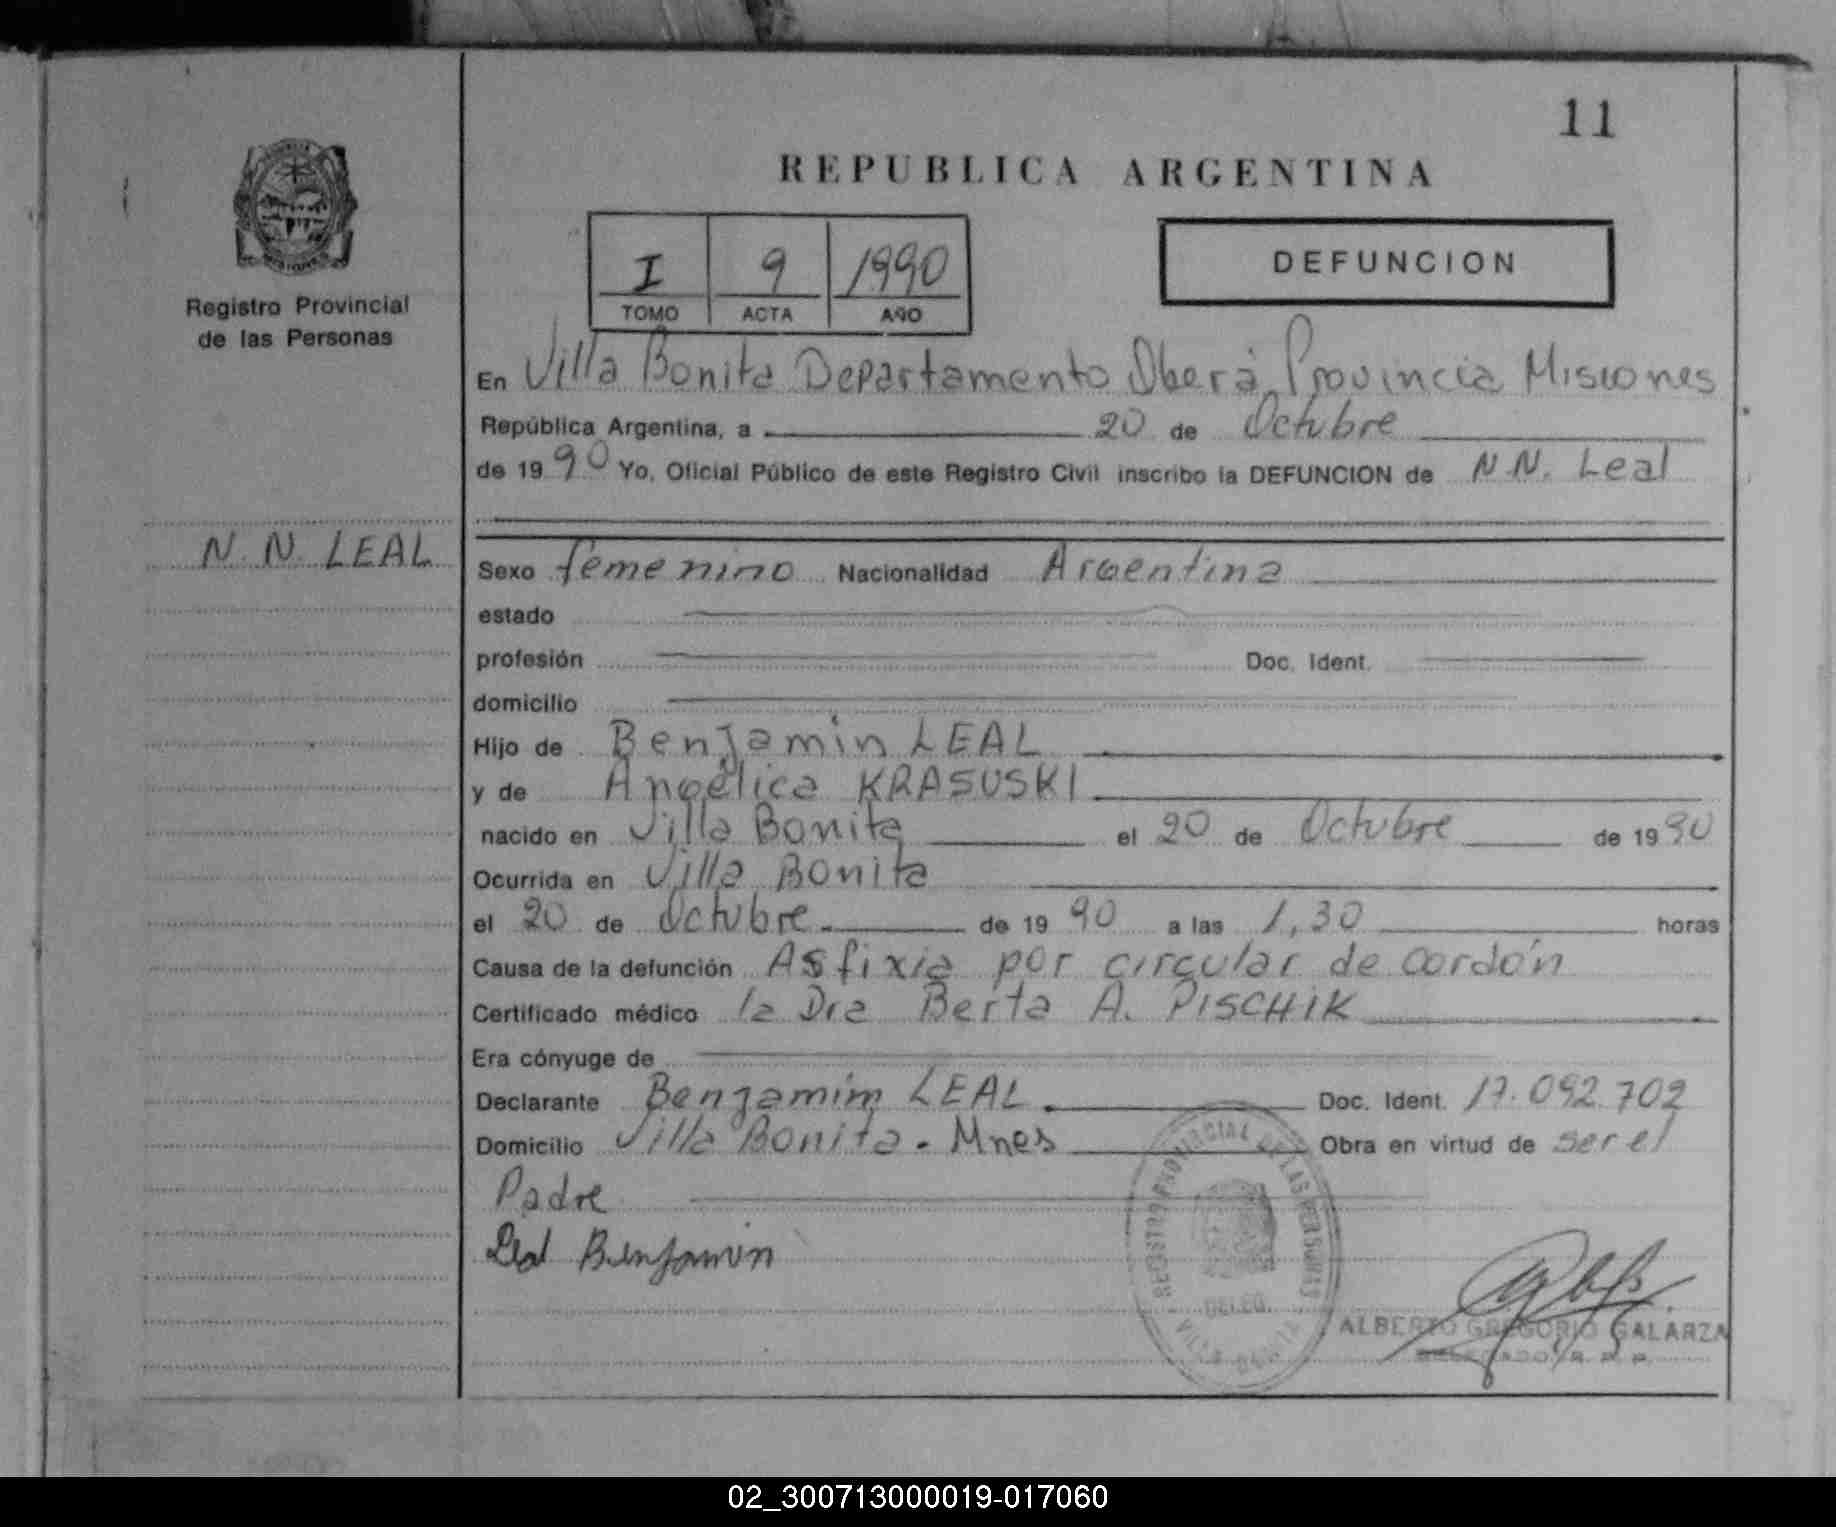 11
REPUBLICA ARGENTINA
I 9 1990
TOMO ACTA AÑO
DEFUNCION
Registro Provincial
de las Personas
N. N. LEAL
En Villa Bonita Departamento Oberá Provincia Misiones
República Argentina, a 20 de Octubre
de 1990 Yo, Oficial Público de este Registro Civil inscribo la DEFUNCION de N.N. Leal
Sexo femenino Nacionalidad Argentina
estado
profesión Doc. Ident.
domicilio
Hijo de Benjamin LEAL
y de Angélica KRASUSKI
nacido en Villa Bonita el 20 de Octubre de 1990
Ocurrida en Villa Bonita
el 20 de Octubre de 1990 a las 1,30 horas
Causa de la defunción Asfixia por circular de cordón
Certificado médico la Dra Berta A. PISCHIK
Era cónyuge de
Declarante Benjamim LEAL Doc. Ident. 17.092.702
Domicilio Villa Bonita - Mnes Obra en virtud de ser el
Padre
Leal Benjamin
REGISTRO PROVINCIAL DE LAS PERSONAS
DELEG.
VILLA BONITA
ALBERTO GREGORIO GALARZA
DELEGADO R. P. P.
02_300713000019-017060